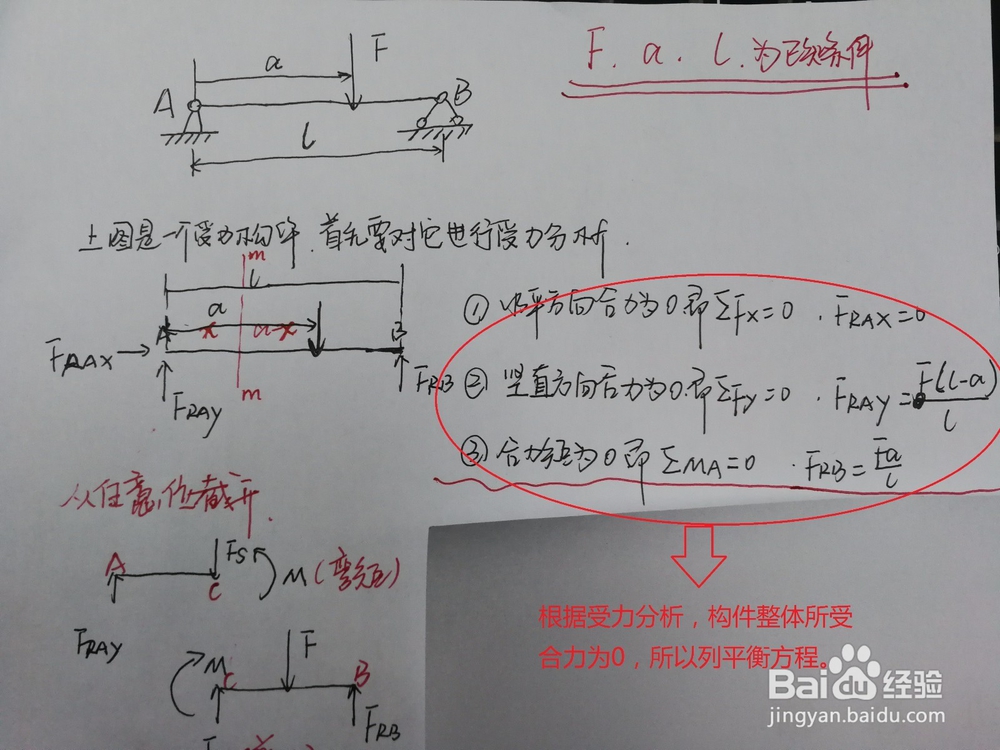 F. a. l. 为已知条件
a
F
A
B
l
上图是一个受力构件.首先要对它进行受力分析.
m
l
a
x
a-x
A
B
FRAX
FRAY
FRB
m
① 水平方向合力为0.即ΣFx=0 . FRAX=0
② 竖直方向合力为0.即ΣFy=0 . FRAY=F(l-a)/l
③ 合力矩为0 即 ΣMA=0 . FRB=Fa/l
从任意位截开.
A
Fs
C
M(弯矩)
FRAY
M
C
F
B
FRB
根据受力分析，构件整体所受
合力为0，所以列平衡方程。
Baidu经验
jingyan.baidu.com